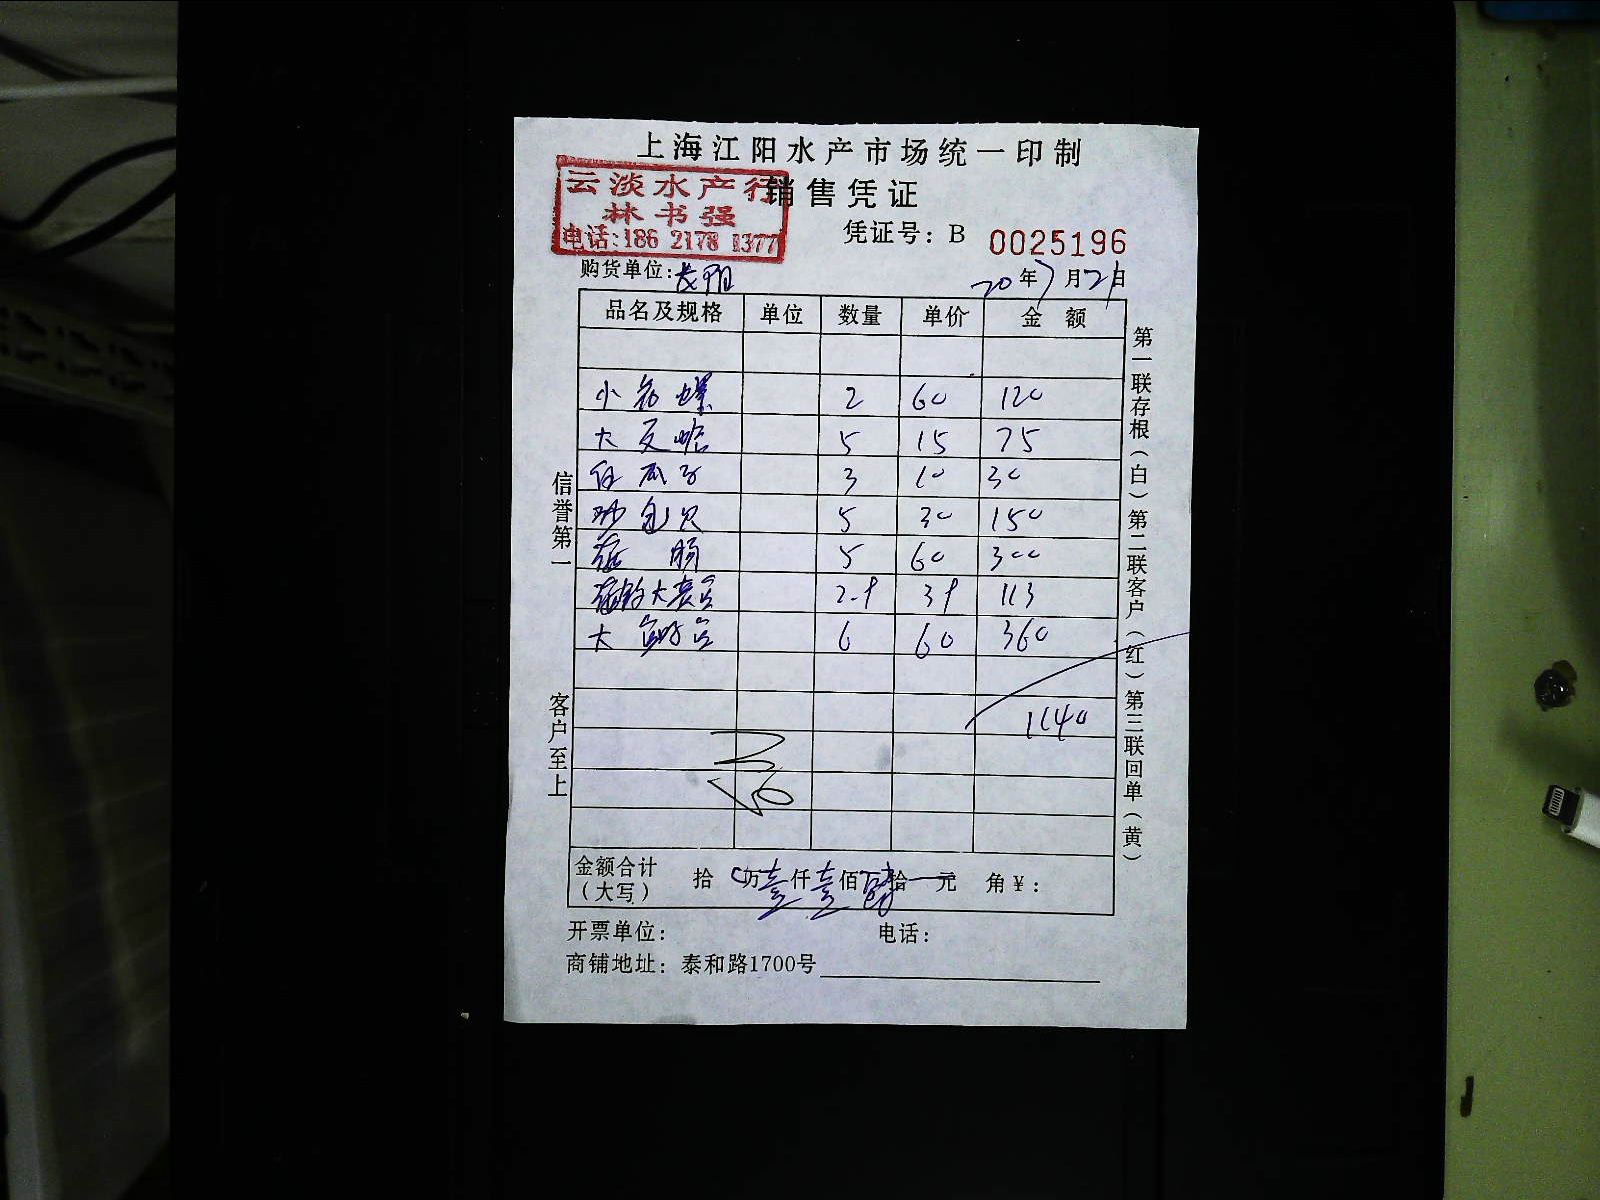 上海江阳水产市场统一印制
销售凭证
云淡水产行
林书强
电话:186 2178 1377
凭证号: B 0025196
购货单位:
20年7月21日
品名及规格 单位 数量 单价 金额
小 螺 2 60 120
大 5 15 75
白瓜子 3 10 30
沙包贝 5 30 150
肠 5 60 300
大 39 113
大 6 60 360
1140
金额合计（大写） 拾 万壹仟壹佰 拾 元 角 ¥:
开票单位: 电话:
商铺地址: 泰和路1700号
信誉第一
客户至上
第一联存根（白）第二联客户（红）第三联回单（黄）